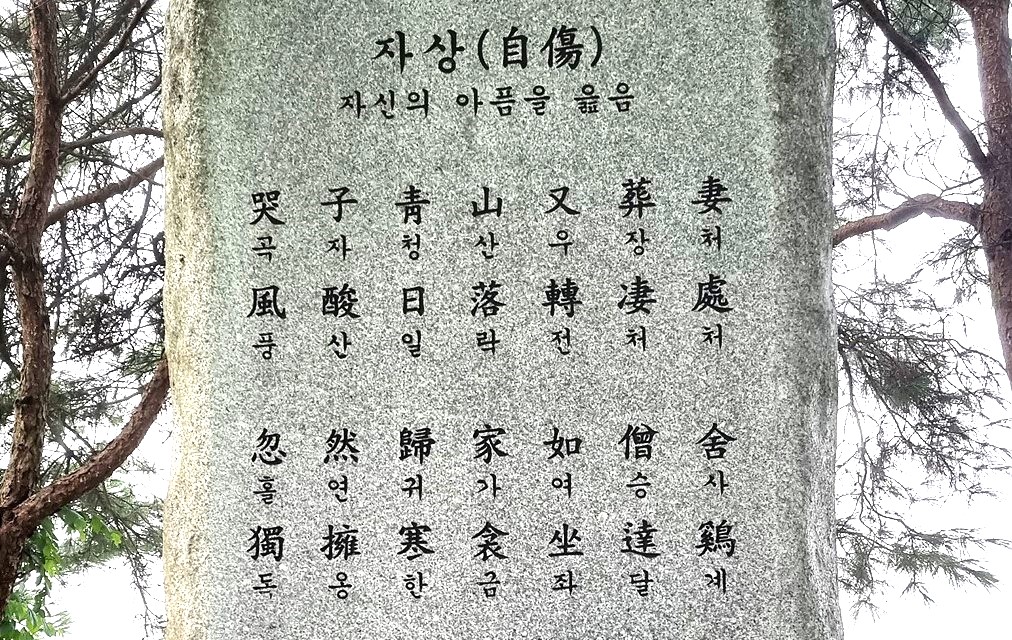 자상(自傷)
자신의 아픔을 읊음
哭 子 靑 山 又 葬 妻
곡 자 청 산 우 장 처
風 酸 日 落 轉 凄 處
풍 산 일 락 전 처 처
忽 然 歸 家 如 僧 舍
홀 연 귀 가 여 승 사
獨 擁 寒 衾 坐 達 鷄
독 옹 한 금 좌 달 계